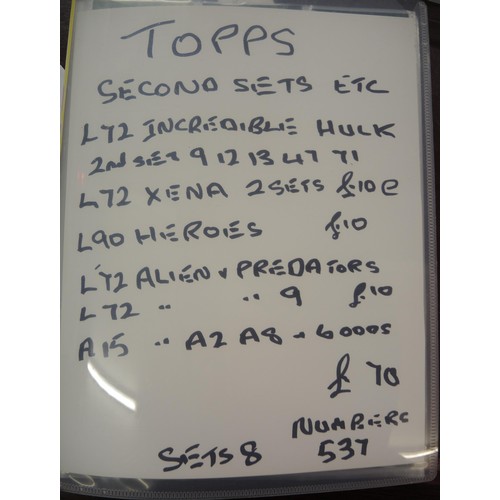 TOPPS
SECOND SETS ETC
L72 INCREDIBLE HULK
2nd SET 9 12 13 47 71
L72 XENA 2 SETS £10 e
L90 HEROES £10
L72 ALIEN v PREDATORS
L72 " " 9 £10
A15 " A2 A8 - 6 ODDS
£70
NUMBERS
SETS 8 537